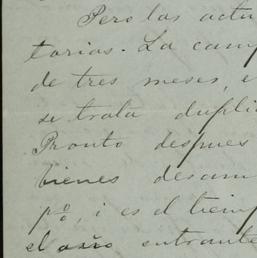 Pero las actu
torias. La camp
de tres meses, e
se trata dupli
Pronto despues
bienes desam
pº, i es el tiemp
el año entrante